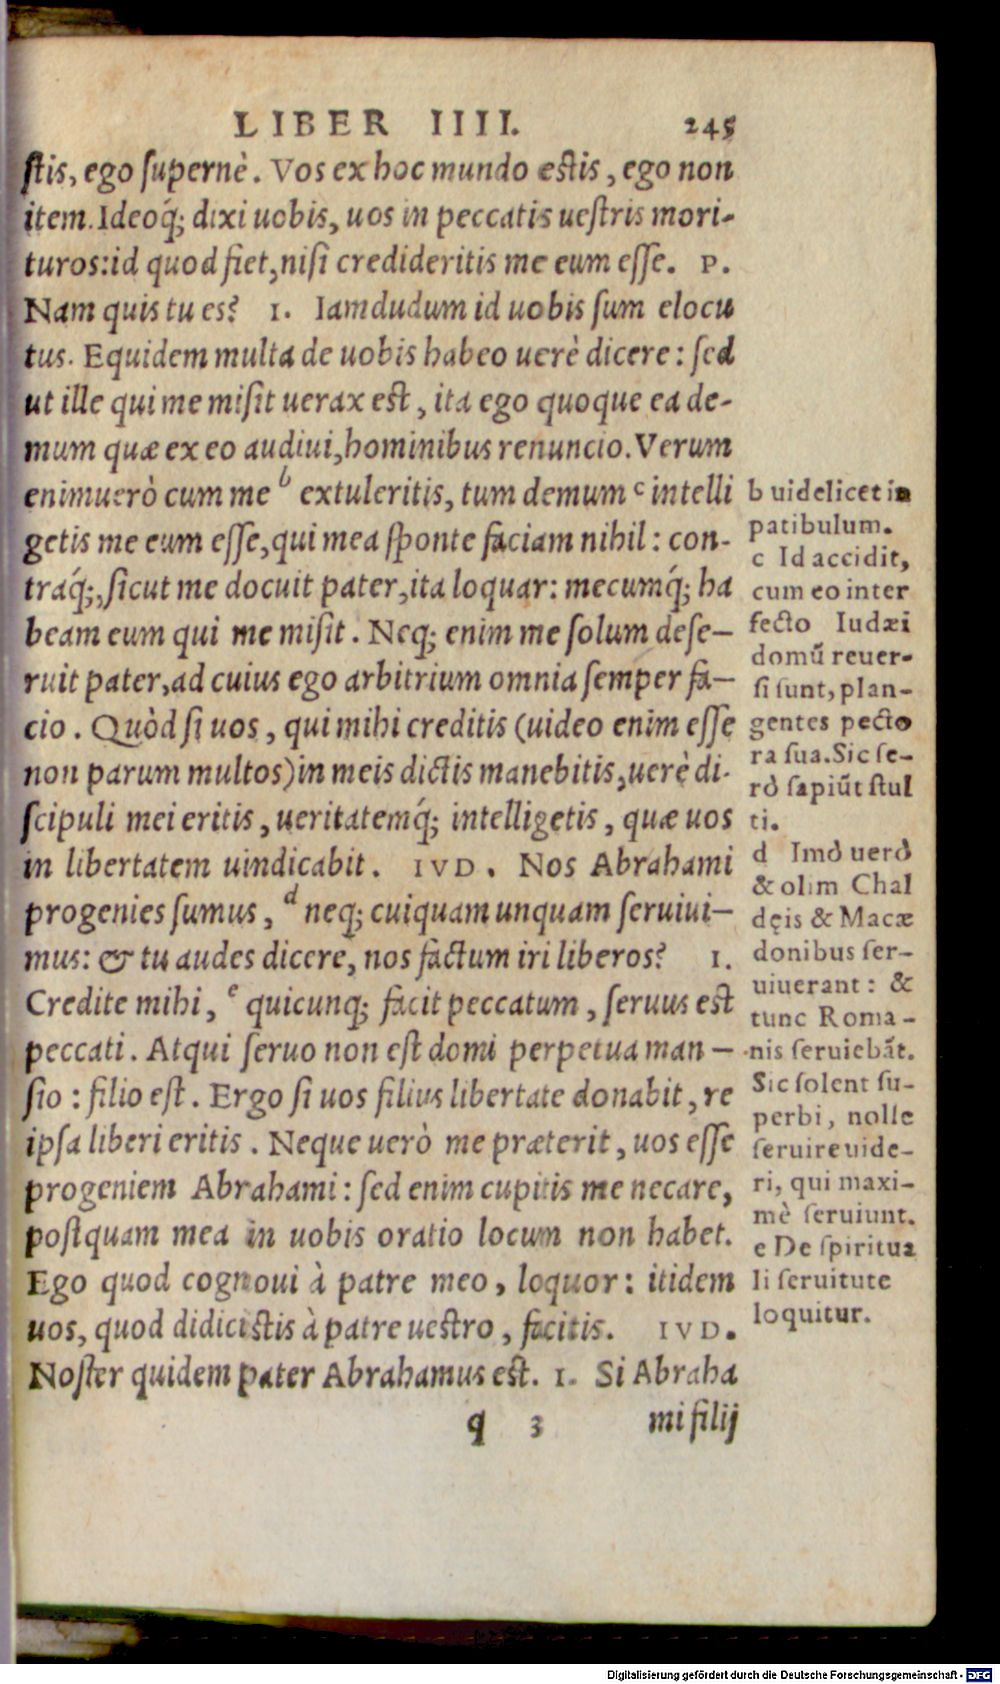 LIBER IIII. 245
stis, ego supernè. Vos ex hoc mundo estis, ego non
item. Ideoq́; dixi uobis, uos in peccatis uestris mori-
turos: id quod fiet, nisi credideritis me eum esse. P.
Nam quis tu es? I. Iamdudum id uobis sum elocu
tus. Equidem multa de uobis habeo uerè dicere: sed
ut ille qui me misit uerax est, ita ego quoque ea de-
mum quæ ex eo audiui, hominibus renuncio. Verum
enimuerò cum me b extuleritis, tum demum c intelli
getis me eum esse, qui mea sponte faciam nihil: con-
traq́;, sicut me docuit pater, ita loquar: mecumq́; ha
beam eum qui me misit. Neq; enim me solum dese-
ruit pater, ad cuius ego arbitrium omnia semper fa-
cio. Quòd si uos, qui mihi creditis (uideo enim esse
non parum multos) in meis dictis manebitis, uerè di-
scipuli mei eritis, ueritatemq́; intelligetis, quæ uos
in libertatem uindicabit. IVD. Nos Abrahami
progenies sumus, d neq; cuiquam unquam seruiui-
mus: & tu audes dicere, nos factum iri liberos? I.
Credite mihi, e quicunq; facit peccatum, seruus est
peccati. Atqui seruo non est domi perpetua man-
sio: filio est. Ergo si uos filius libertate donabit, re
ipsa liberi eritis. Neque uerò me præterit, uos esse
progeniem Abrahami: sed enim cupitis me necare,
postquam mea in uobis oratio locum non habet.
Ego quod cognoui à patre meo, loquor: itidem
uos, quod didicistis à patre uestro, facitis. IVD.
Noster quidem pater Abrahamus est. I. Si Abraha
q 3 mi filij
b uidelicet in
patibulum.
c Id accidit,
cum eo inter
fecto Iudæi
domũ reuer-
si sunt, plan-
gentes pecto
ra sua. Sic se-
rò sapiũt stul
ti.
d Imò uerò
& olim Chal
dęis & Macæ
donibus ser-
uiuerant: &
tunc Roma-
nis seruiebãt.
Sic solent su-
perbi, nolle
seruire uide-
ri, qui maxi-
mè seruiunt.
e De spiritua
li seruitute
loquitur.
Digitalisierung gefördert durch die Deutsche Forschungsgemeinschaft - DFG